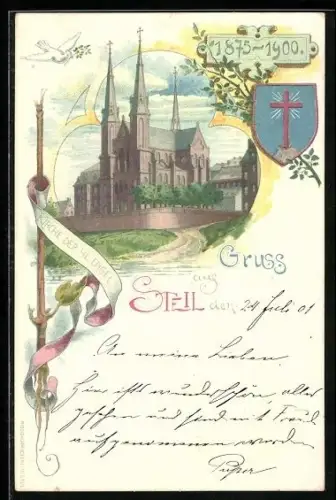 1875-1900.
KIRCHE DER HL. ENGEL
Gruss
aus
STEYL den 24 Juli 01
An meine Lieben.
Hier ists wunderschön, alles
gesehen und sind mit Freud
aufgenommen worden